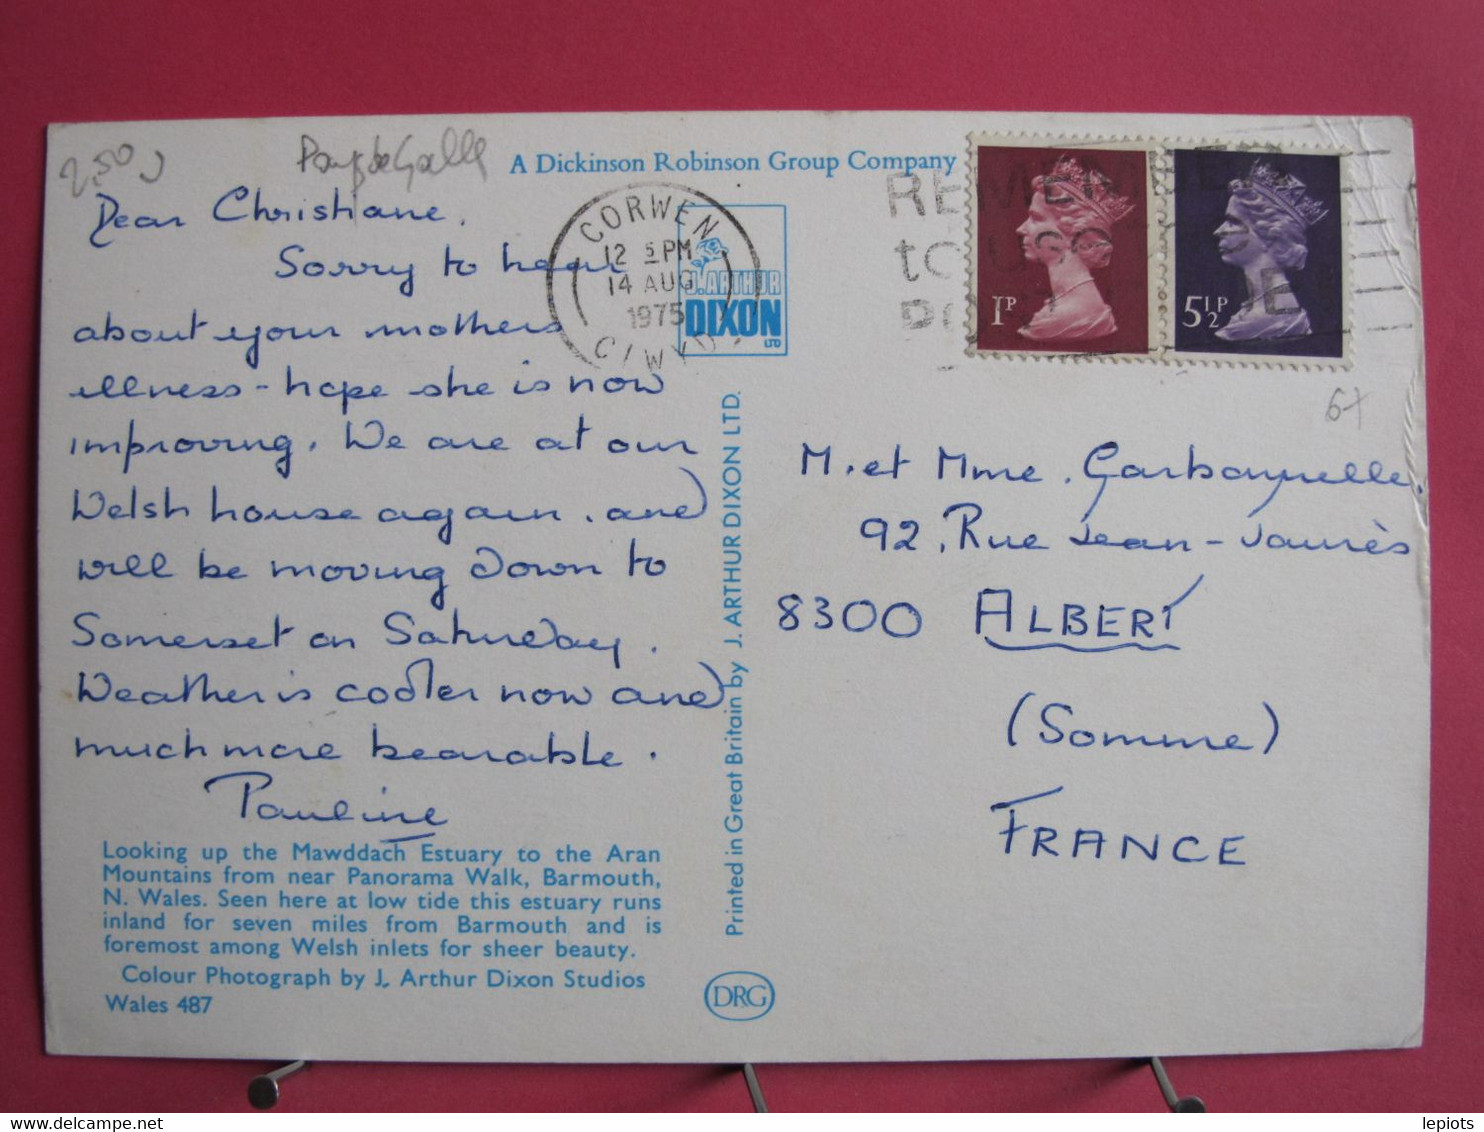 2,50
Pays de Galle
A Dickinson Robinson Group Company
Dear Christiane,
Sorry to hear
about your mothers
illness - hope she is now
improving. We are at our
Welsh house again, and
will be moving down to
Somerset on Saturday.
Weather is cooler now and
much more bearable.
Pauline
Looking up the Mawddach Estuary to the Aran
Mountains from near Panorama Walk, Barmouth,
N. Wales. Seen here at low tide this estuary runs
inland for seven miles from Barmouth and is
foremost among Welsh inlets for sheer beauty.
Colour Photograph by J. Arthur Dixon Studios
Wales 487
CORWEN
12 5 PM
14 AUG
1975
CLWYD
J. ARTHUR
DIXON
LTD
Printed in Great Britain by J. ARTHUR DIXON LTD.
DRG
REMEMBER
to USE
POSTCODE
1P
5½P
M. et Mme. Garbaynelle.
92, Rue Jean-Jaurès
8300 ALBERT
(Somme)
FRANCE
lepiots